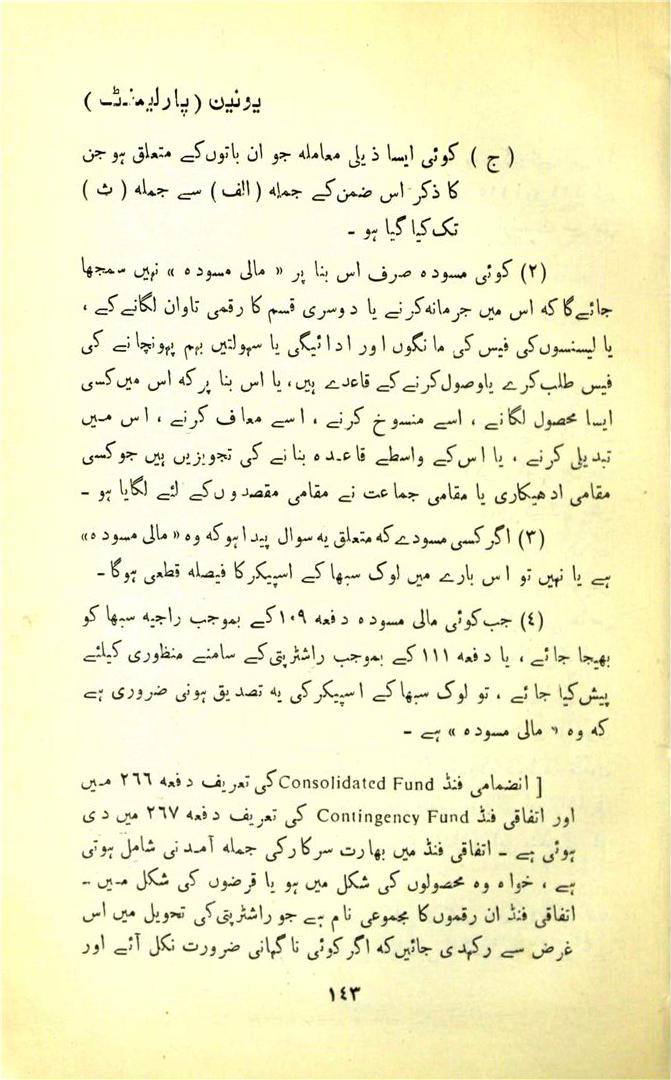 یونین (پارلیمنٹ)
(ج) کوئی ایسا ذیلی معاملہ جو ان باتوں کے متعلق ہو جن
کا ذکر اس ضمن کے جملہ (الف) سے جملہ (ث)
تک کیا گیا ہو ۔
(۲) کوئی مسودہ صرف اس بنا پر « مالی مسودہ » نہیں سمجھا
جائے گا کہ اس میں جرمانہ کرنے یا دوسری قسم کا رقمی تاوان لگانے کے ،
یا لیسنسوں کی فیس کی مانگوں اور ادائیگی یا سہولتیں بہم پہونچانے کی
فیس طلب کرے یا وصول کرنے کے قاعدے ہیں، یا اس بنا پر کہ اس میں کسی
ایسا محصول لگانے ، اسے منسوخ کرنے ، اسے معاف کرنے ، اس میں
تبدیلی کرنے ، یا اس کے واسطے قاعدہ بنانے کی تجویزیں ہیں جو کسی
مقامی ادھیکاری یا مقامی جماعت نے مقامی مقصدوں کے لئے لگایا ہو ۔
(۳) اگر کسی مسودے کہ متعلق یہ سوال پیدا ہو کہ وہ « مالی مسودہ»
ہے یا نہیں تو اس بارے میں لوک سبھا کے اسپیکر کا فیصلہ قطعی ہوگا ۔
(٤) جب کوئی مالی مسودہ دفعہ ۱۰۹ کے بموجب راجیہ سبھا کو
بھیجا جائے ، یا دفعہ ۱۱۱ کے بموجب راشٹرپتی کے سامنے منظوری کیلئے
پیش کیا جائے ، تو لوک سبھا کے اسپیکر کی یہ تصدیق ہونی ضروری ہے
کہ وہ « مالی مسودہ » ہے ۔
[ انضمامی فنڈ Consolidated Fund کی تعریف دفعہ ۲٦٦ میں
اور اتفاقی فنڈ Contingency Fund کی تعریف دفعہ ۲٦۷ میں دی
ہوئی ہے ۔ اتفاقی فنڈ میں بھارت سرکار کی جملہ آمدنی شامل ہوتی
ہے ، خواہ وہ محصولوں کی شکل میں ہو یا قرضوں کی شکل میں ۔
اتفاقی فنڈ ان رقموں کا مجموعی نام ہے جو راشٹرپتی کی تحویل میں اس
غرض سے رکھدی جائیں کہ اگر کوئی ناگہانی ضرورت نکل آئے اور
۱٤۳